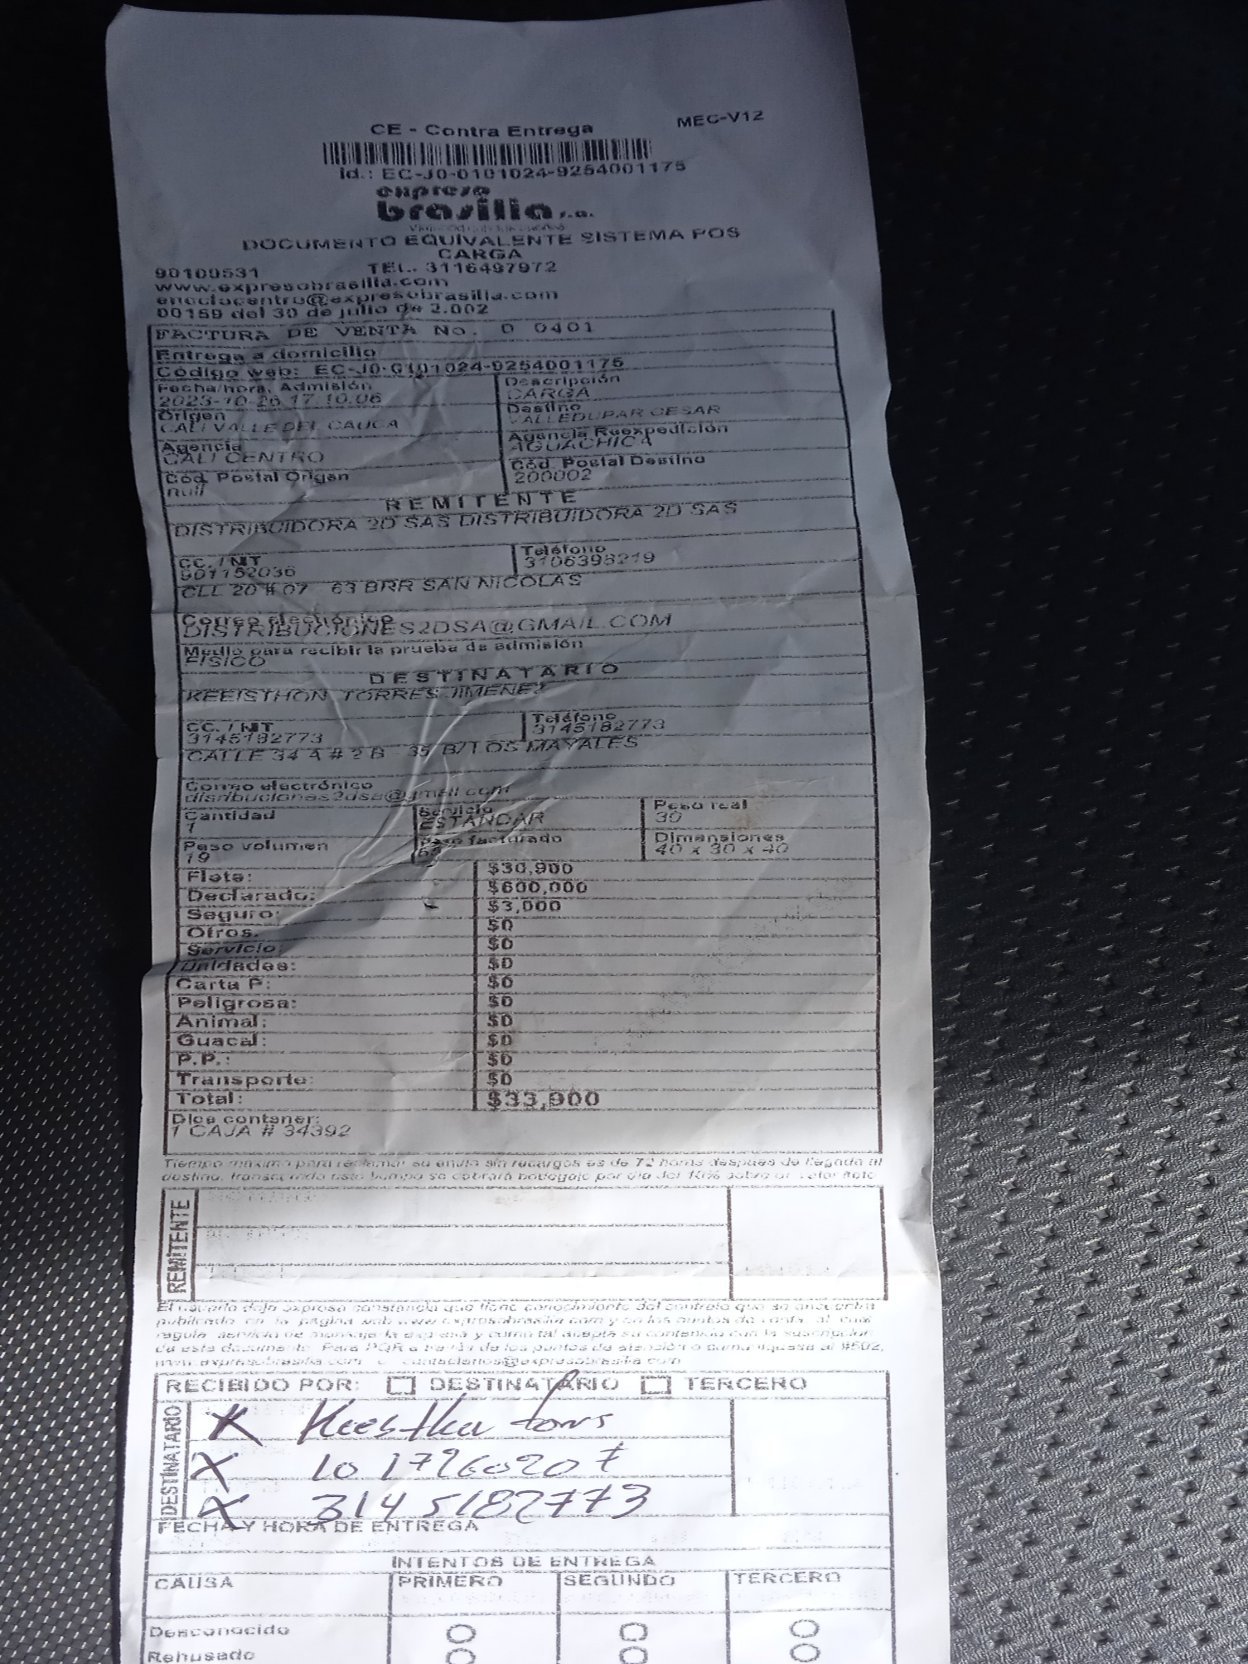 CE - Contra Entrega MEC-V12
Id.: EC-J0-0101024-9254001175
expreso
brasilia s.a.
DOCUMENTO EQUIVALENTE SISTEMA POS
CARGA
90100531 TEL. 3116497972
www.expresobrasilia.com
@expresobrasilia.com
00159 del 30 de julio de 2.002
FACTURA DE VENTA No. 0 0401
Entrega a domicilio
Código web: EC-J0-0101024-9254001175
Fecha/hora. Admisión Descripción
2023-10-26 17.10.06 CARGA
Origen Destino
CALI VALLE DEL CAUCA VALLEDUPAR CESAR
Agencia Agencia Reexpedición
CALI CENTRO AGUACHICA
Cód. Postal Origen Cód. Postal Destino
null 200002
REMITENTE
DISTRIBUIDORA 2D SAS DISTRIBUIDORA 2D SAS
CC. / NIT Teléfono
901152036 3106398219
CLL 20 # 07 63 BRR SAN NICOLAS
Correo electrónico
DISTRIBUCIONES2DSA@GMAIL.COM
Medio para recibir la prueba de admisión
FISICO
DESTINATARIO
KEEISTHON TORRES JIMENEZ
CC. / NIT Teléfono
3145182773 3145182773
CALLE 34 A # 2 B 35 B/ LOS MAYALES
Correo electrónico
Cantidad Servicio Peso real
1 ESTANDAR 30
Peso volumen Peso facturado Dimensiones
19 40 x 30 x 40
Flete: $30,900
Declarado: $600,000
Seguro: $3,000
Otros: $0
Servicio: $0
Unidades: $0
Carta P: $0
Peligrosa: $0
Animal: $0
Guacal: $0
P.P.: $0
Transporte: $0
Total: $33,900
Dice contener:
1 CAJA # 34392
Tiempo máximo para reclamar su envío sin recargos es de 72 horas después de llegada al
destino, transcurrido este tiempo se cobrará bodegaje por día del 10% sobre el valor flete
REMITENTE
El usuario deja expresa constancia que tiene conocimiento del contrato que se encuentra
publicado en la página web www.expresobrasilia.com y en los puntos de venta, el cual
regula servicio de mensajería expresa y como tal acepta su contenido con la suscripción
de este documento. Para PQR a través de los puntos de atención o comuníquese al
www.expresobrasilia.com o contactenos@expresobrasilia.com
RECIBIDO POR: DESTINATARIO TERCERO
DESTINATARIO
X
X
X 3145182773
FECHA Y HORA DE ENTREGA
INTENTOS DE ENTREGA
CAUSA PRIMERO SEGUNDO TERCERO
Desconocido
Rehusado